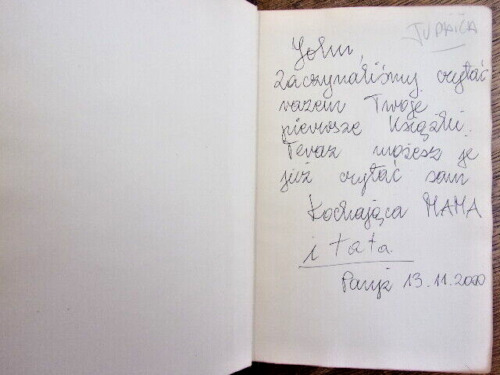 JUDAICA
John,
zaczynaliśmy czytać
razem Twoje
pierwsze Książki.
Teraz możesz je
już czytać sam
Kochająca MAMA
i tata.
Paryż 13.11.2000